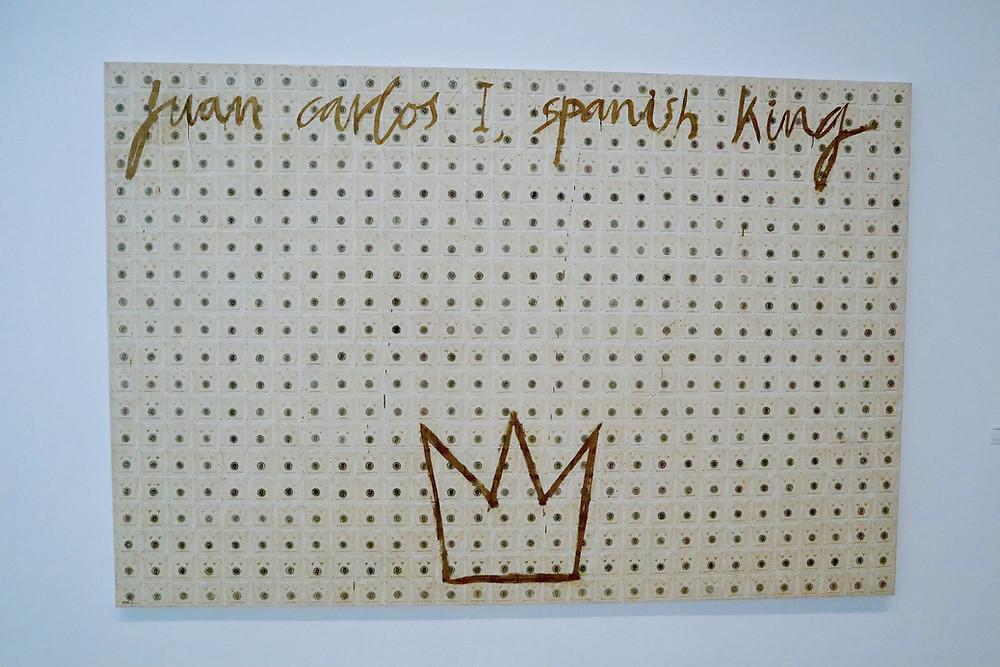 juan carlos I, spanish king